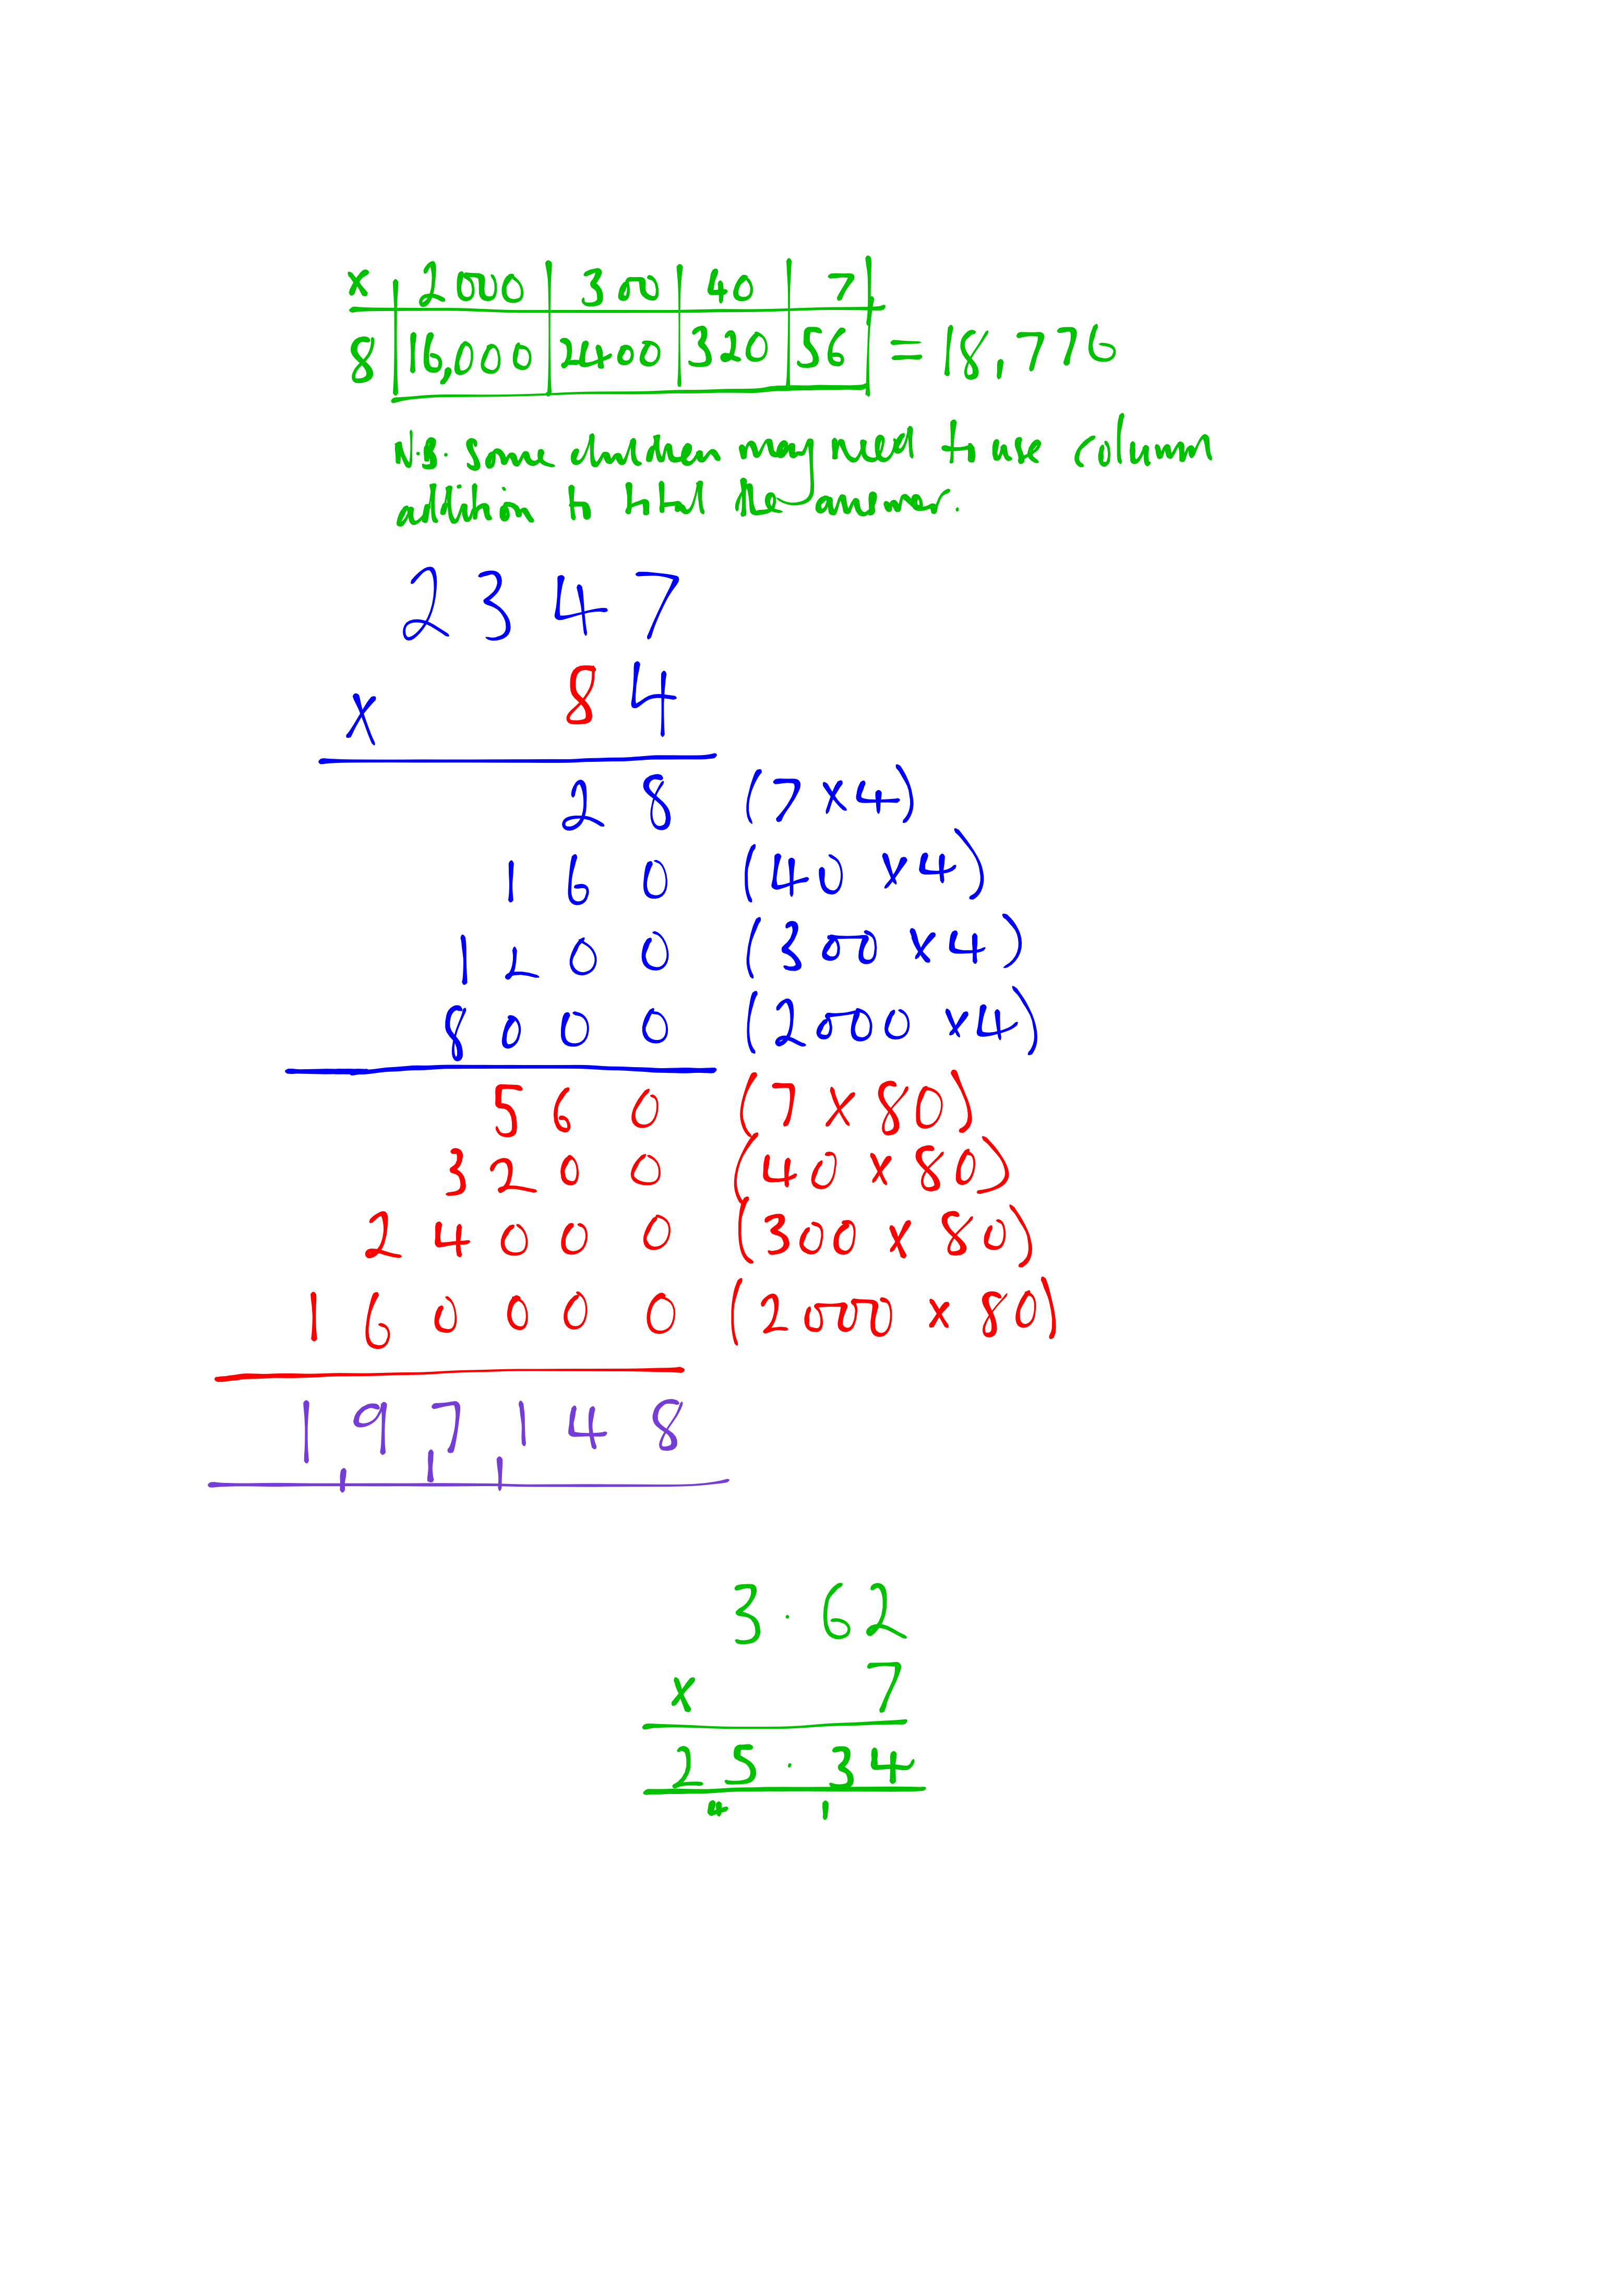 x 2000 300 40 7
8 16,000 2400 320 56 = 18,776
N.B. Some children may need to use column
addition to total the answer.
2347
x 84
28 (7 x 4)
160 (40 x 4)
1200 (300 x 4)
8000 (2000 x 4)
560 (7 x 80)
3200 (40 x 80)
24000 (300 x 80)
160000 (2000 x 80)
197148
1 1 1
3.62
x 7
25.34
4 1